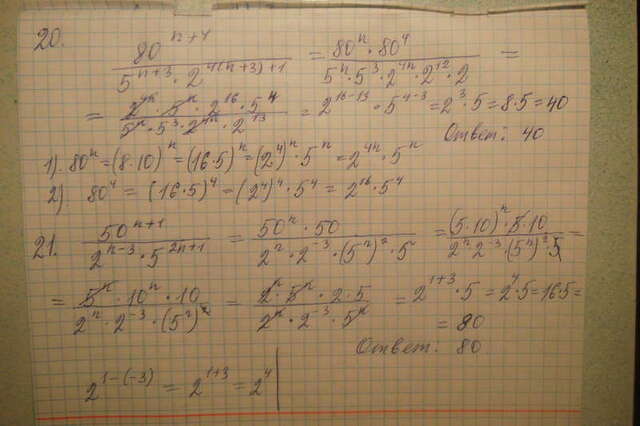 20.
80^(n+4) / (5^(n+3) · 2^(4(n+3)+1)) = 80^n · 80^4 / (5^n · 5^3 · 2^(4n) · 2^12 · 2) =
= 2^(4n) · 5^n · 2^16 · 5^4 / (5^n · 5^3 · 2^(4n) · 2^13) = 2^(16-13) · 5^(4-3) = 2^3 · 5 = 8·5 = 40
Ответ: 40
1). 80^n = (8·10)^n = (16·5)^n = (2^4)^n · 5^n = 2^(4n) · 5^n
2). 80^4 = (16·5)^4 = (2^4)^4 · 5^4 = 2^16 · 5^4
21. 50^(n+1) / (2^(n-3) · 5^(2n+1)) = 50^n · 50 / (2^n · 2^(-3) · (5^n)^2 · 5) = (5·10)^n · 5·10 / (2^n 2^(-3) · (5^n)^2 · 5) =
= 5^n · 10^n · 10 / (2^n · 2^(-3) · (5^n)^2) = 2^n · 5^n · 2·5 / (2^n · 2^(-3) · 5^n) = 2^(1+3) · 5 = 2^4 · 5 = 16·5 =
= 80
Ответ: 80
2^(1-(-3)) = 2^(1+3) = 2^4